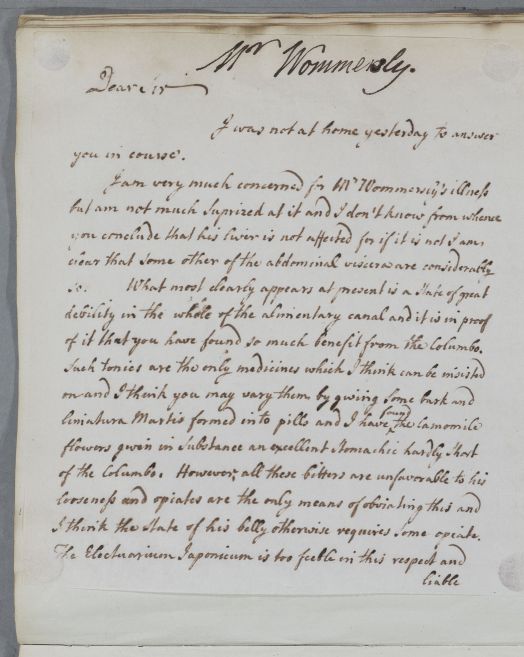 Mr Wommersly.
Dear Sir
I was not at home yesterday to answer
you in course.
I am very much concerned for Mr Wommersly's illness
but am not much suprized at it and I don't know from whence
you conclude that his liver is not affected for if it is not I am
clear that some other of the abdominal viscera are considerably
so. What most clearly appears at present is a state of great
debility in the whole of the alimentary canal and it is in proof
of it that you have found so much benefit from the Columbo.
Such tonics are the only medicines which I think can be insisted
on and I think you may vary them by giving some bark and
Limatura Martis formed into pills and I have found the Camomile
flowers given in substance an excellent Stomachic hardly short
of the Columbo. However, all these bitters are unfavorable to his
looseness and opiates are the only means of obviating this and
I think the state of his belly otherwise requires some opiate.
The Electuarium Japonicum is too feeble in this respect and
liable